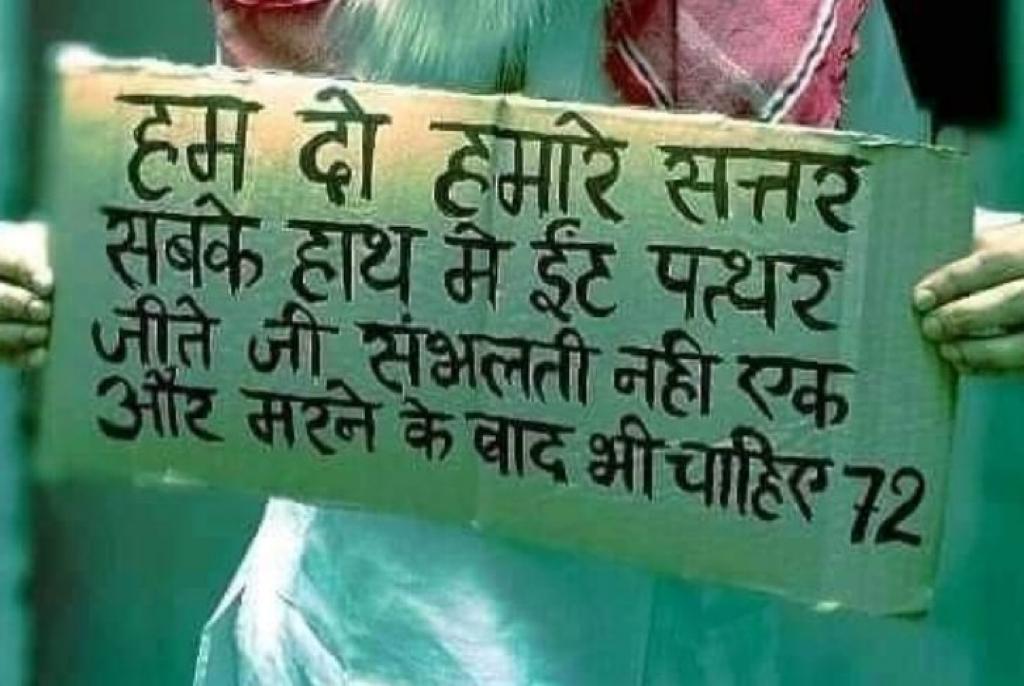 हम दो हमारे सत्तर
सबके हाथ मे ईंट पत्थर
जीते जी संभलती नही एक
और मरने के बाद भी चाहिए 72